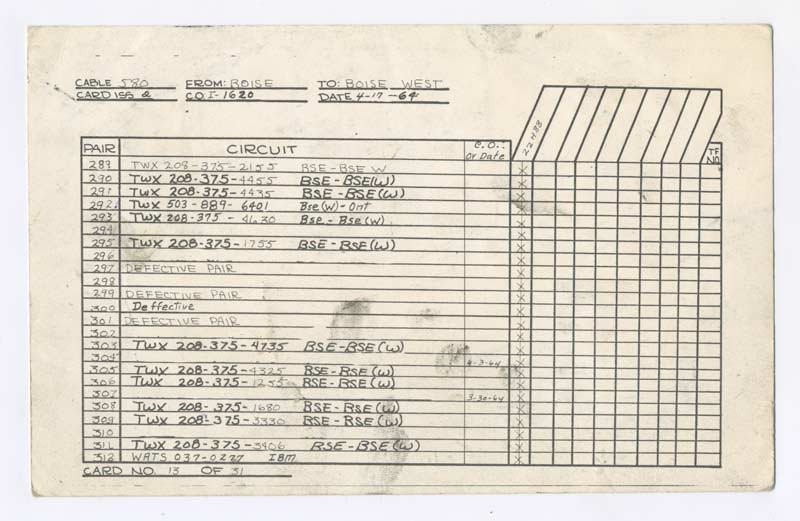 CABLE 580 FROM: BOISE TO: BOISE WEST
CARD ISS 2 C.O. I-1620 DATE 4-17-64
PAIR CIRCUIT C.O. Or Date 22H88 TF NO.
289 TWX 208-375-2155 BSE-BSE W X
290 TWX 208-375-4455 BSE-BSE(W) X
291 TWX 208-375-4435 BSE-BSE(W) X
292 TWX 503-889-6401 Bse(W)-Ont X
293 TWX 208-375-4630 Bse-Bse(W) X
294 X
295 TWX 208-375-1755 BSE-BSE(W) X
296 X
297 DEFECTIVE PAIR X
298 X
299 DEFECTIVE PAIR X
300 Deffective X
301 DEFECTIVE PAIR X
302 X
303 TWX 208-375-4735 BSE-BSE(W) X
304 X
305 TWX 208-375-4325 BSE-BSE(W) 4-3-64 X
306 TWX 208-375-1255 BSE-BSE(W) X
307 X
308 TWX 208-375-1680 BSE-BSE(W) 3-30-64 X
309 TWX 208-375-3330 BSE-BSE(W) X
310 X
311 TWX 208-375-3406 BSE-BSE(W) X
312 WATS 037-0227 IBM X
CARD NO. 13 OF 31